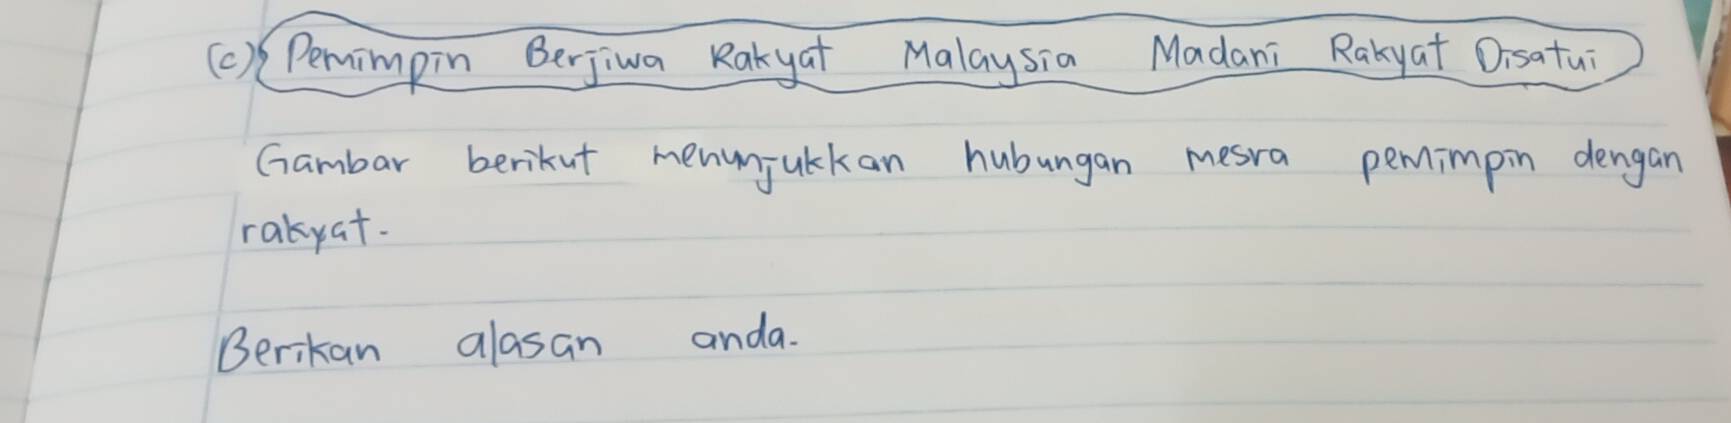 (c) Pemimpin Berjiwa Rakyat Malaysia Madani Rakyat Disatui
Gambar berikut menunjukkan hubungan mesra pemimpin dengan
rakyat.
Berikan alasan anda.